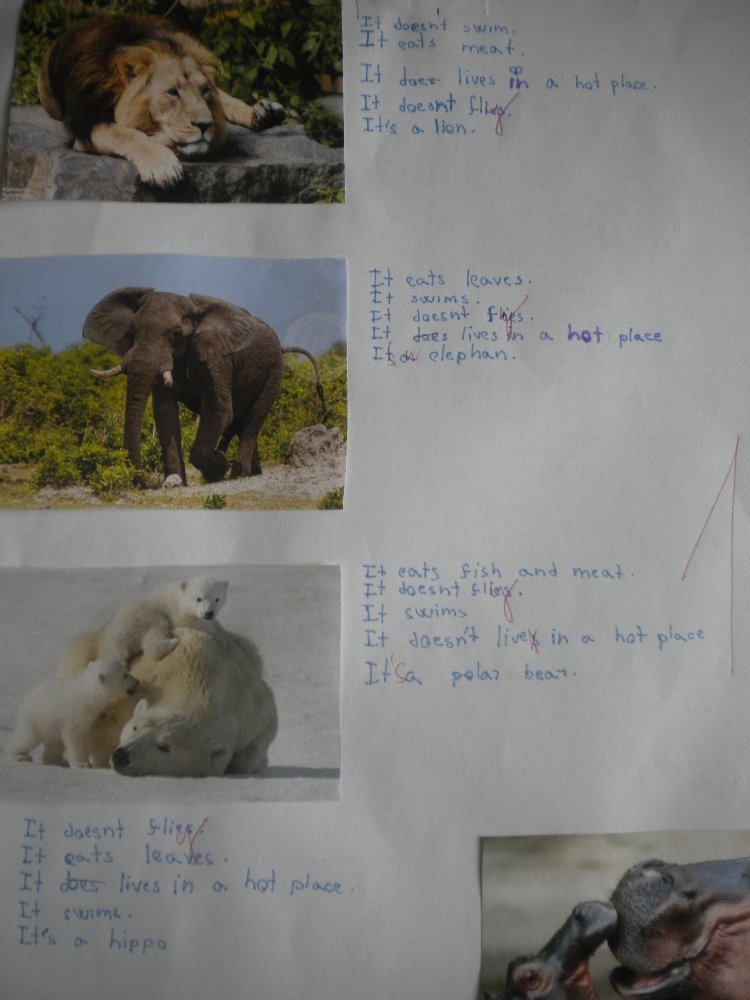 It doesn't swim.
It eats meat.
It does lives in a hot place.
It doesnt flies.
It's a lion.
It eats leaves.
It swims.
It doesnt flies.
It does lives in a hot place
It's an elephan.
It eats fish and meat.
It doesnt flies.
It swims
It doesn't lives in a hot place
It's a polar bear.
It doesnt flies.
It eats leaves.
It does lives in a hot place.
It swims.
It's a hippo